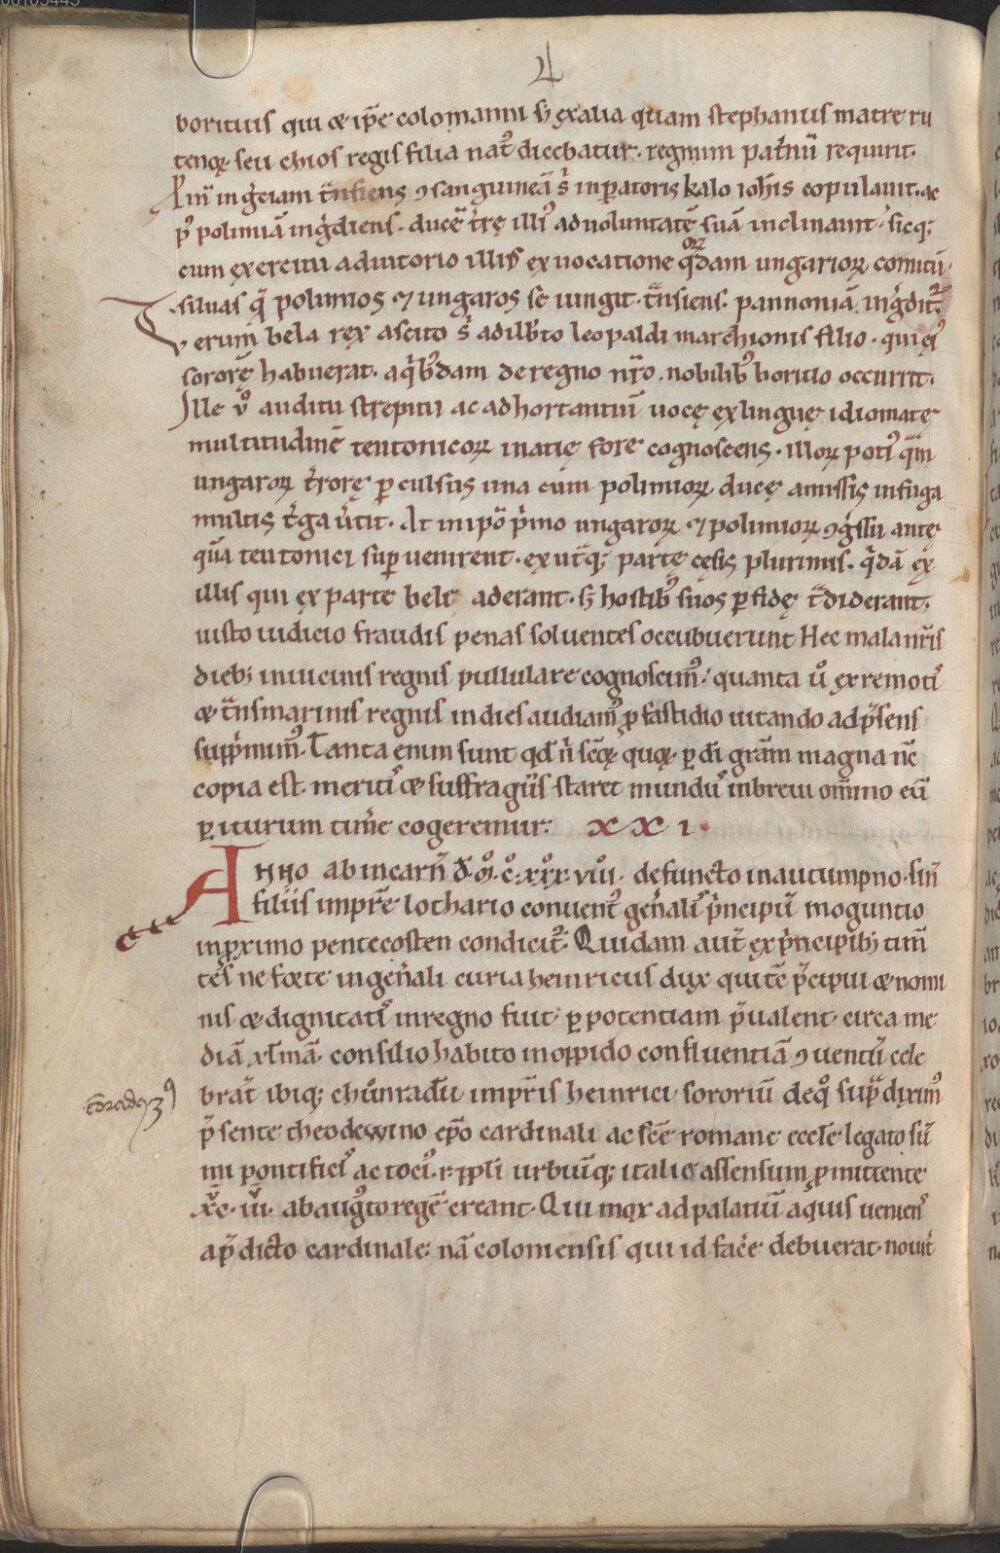 4
boritius qui & ip̄e colomanni s; ex alia quam stephanus matre ru
tenoꝝ seu chios regis filia nat᷒ dicebatur · regnum pat̄nū requirit.
Pͥmū in gͬciam t̄nsiens ꝯsanguineā s̄ inꝑatoris kalo ioh̄is copulauit · ac
p᷒ polimiā ingͬdiens · ducē t̄rę illi᷒ ad uoluntatē suā inclinauit · sicq;
cum exercitu adiutorio illi᷒ ex uocatione qͦrdam ungarioꝝ comitū
siluas q̄ polimios ⁊ ungaros seiungit · t̄nsiens · pannoniā ingͬdit᷑.
Verum bela rex ascito s̄ adilb̄to leopaldi marchionis filio · qui ei᷒
sororē habuerat · a qͥb᷒dam de regno nr̄o nobilib᷒ boritio occurrit.
Ille v̊ auditu strepitu ac adhortantiū uocę ex linguę idiomate
multitudinē teutonicoꝝ in acię fore cognoscens · illoꝝ poti᷒ q̄m
ungaroꝝ t̄rore ꝑculsus una cum polimioꝝ ducę amissis in fuga
multis t̄ga u̅tit · At in ip̄o pͥmo ungaroꝝ ⁊ polimioꝝ ꝯgͬssu ante
quā teutonici suꝑuenirent · ex ut̄q; parte cęsis plurimis · qͥdā ex
illis qui ex parte bele aderant · s; hostib᷒ suos ꝑfidę t̄diderant.
iusto iudicio fraudis penas soluentes occubuerunt Hec mala nr̄is
dieb; in uicinis regnis pullulare cognoscim᷒ · quanta ů ex remoti᷒
& t̄nsmarinis regnis in dies audiam᷒ ꝓ fastidio uitando ad p̄sens
supp̄mim᷒ · Tanta enim sunt qd̄ n̄ scōꝝ quoꝝ ꝑ dī grām magna nc̄
copia est · meriti᷒ & suffragiis staret mund᷒ in breui om̄ino eū
ꝑiturum tim̄e cogeremur. X X I ·
Anno ab incarn̄ d̄ · M̊ · C̊ · XXX · VIII · defuncto in autumpno · sin̄
filiis impr̄e lothario conuent᷒ gen̄ali᷒ pͥncipū moguntio
in ꝓximo pentecosten condicit᷑ · Quidam aut̄ ex pͥncipib; tim̄
tes ne forte in gen̄ali curia heinricus dux qui tc̄ p̄cipui & nomi
nis & dignitati᷒ in regno fuit ꝑ potentiam p̄ualeret circa me
diā xl̄mā · consilio habito in oppido confluentiā ꝯuentū cele
brat ibiq; chunradū impr̄is heinrici sororiū de qͦ sup̄ diximꝰ
p̄sente theodewino ep̄o cardinali ac scē romane eccl̄e legato sū
mi pontifici᷒ ac toci᷒ r · ppl̄i urbiūq; italie assensum ꝓmittente
XC · III · ab aug᷒to regē creant · Qui mox ad palatiū aquis uenien᷒
a p̄dicto cardinale: nā coloniensis qui id fac̄e debuerat · nouit̄